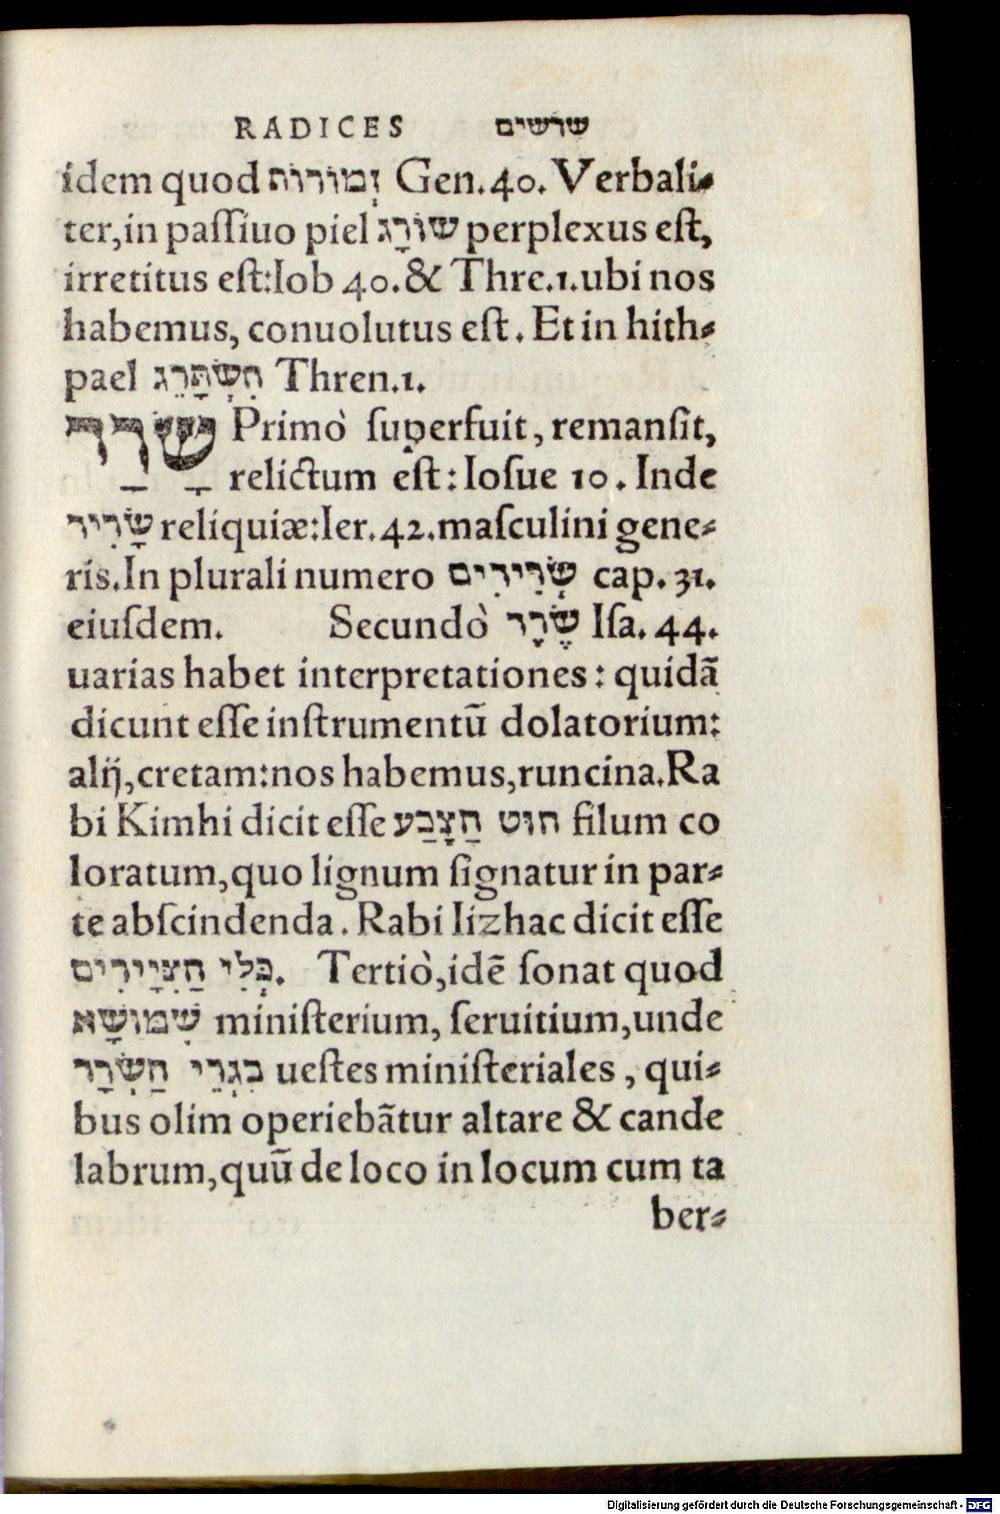 RADICES שרשים
idem quod זְמוֹרוֹת Gen.40. Verbali⸗
ter,in paſſiuo piel שׂוֹרָג perplexus eſt,
irretitus eſt:Iob 40.& Thre.1.ubi nos
habemus, conuolutus eſt. Et in hith⸗
pael הִשְׂתָּרֵג Thren.1.
שָׂרַד Primò ſuperfuit, remanſit,
relictum eſt: Ioſue 10. Inde
שָׂרִיד reliquiæ:Ier.42.maſculini gene⸗
ris.In plurali numero שְׂרִידִים cap. 31.
eiuſdem. Secundò שֶׂרָד Iſa. 44.
uarias habet interpretationes: quidã
dicunt eſſe inſtrumentũ dolatorium:
alij,cretam:nos habemus,runcina.Ra
bi Kimhi dicit eſſe חוּט הַצָבַע filum co
loratum,quo lignum ſignatur in par⸗
te abſcindenda. Rabi Iizhac dicit eſſe
כְּלִי הַצִּיָּירִים. Tertiò,idẽ ſonat quod
שִׁמּוּשָׁא miniſterium, ſeruitium,unde
בִגְדֵי הַשְׂרָד ueſtes miniſteriales, qui⸗
bus olim operiebãtur altare & cande
labrum,quũ de loco in locum cum ta
ber⸗
Digitalisierung gefördert durch die Deutsche Forschungsgemeinschaft - DFG